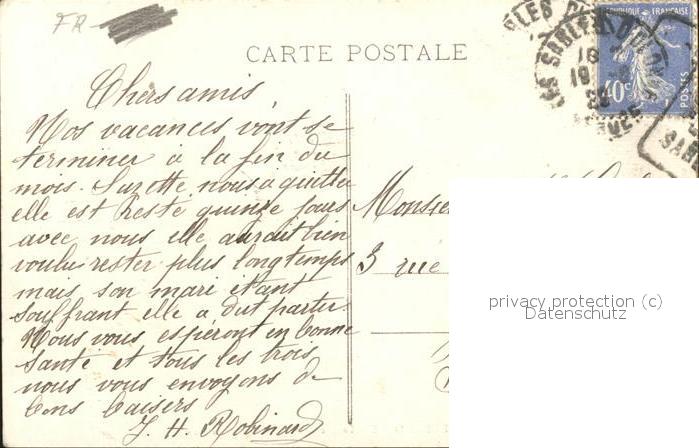 FR
CARTE POSTALE
RÉPUBLIQUE FRANÇAISE
40c
POSTES
LES SABLES D'OLONNE
Chers amis
Nos vacances vont se
terminer à la fin du
mois. Suzette nous a quitter
elle est resté quinze jours
avec nous elle aurait bien
voulu rester plus longtemps
mais son mari etant
souffrant elle a dut partir.
Nous vous esperont en bonne
santé et tous les trois
nous vous envoyons de
bons baisers
J. H. Robinard
Monsie
3 rue
privacy protection (c)
Datenschutz